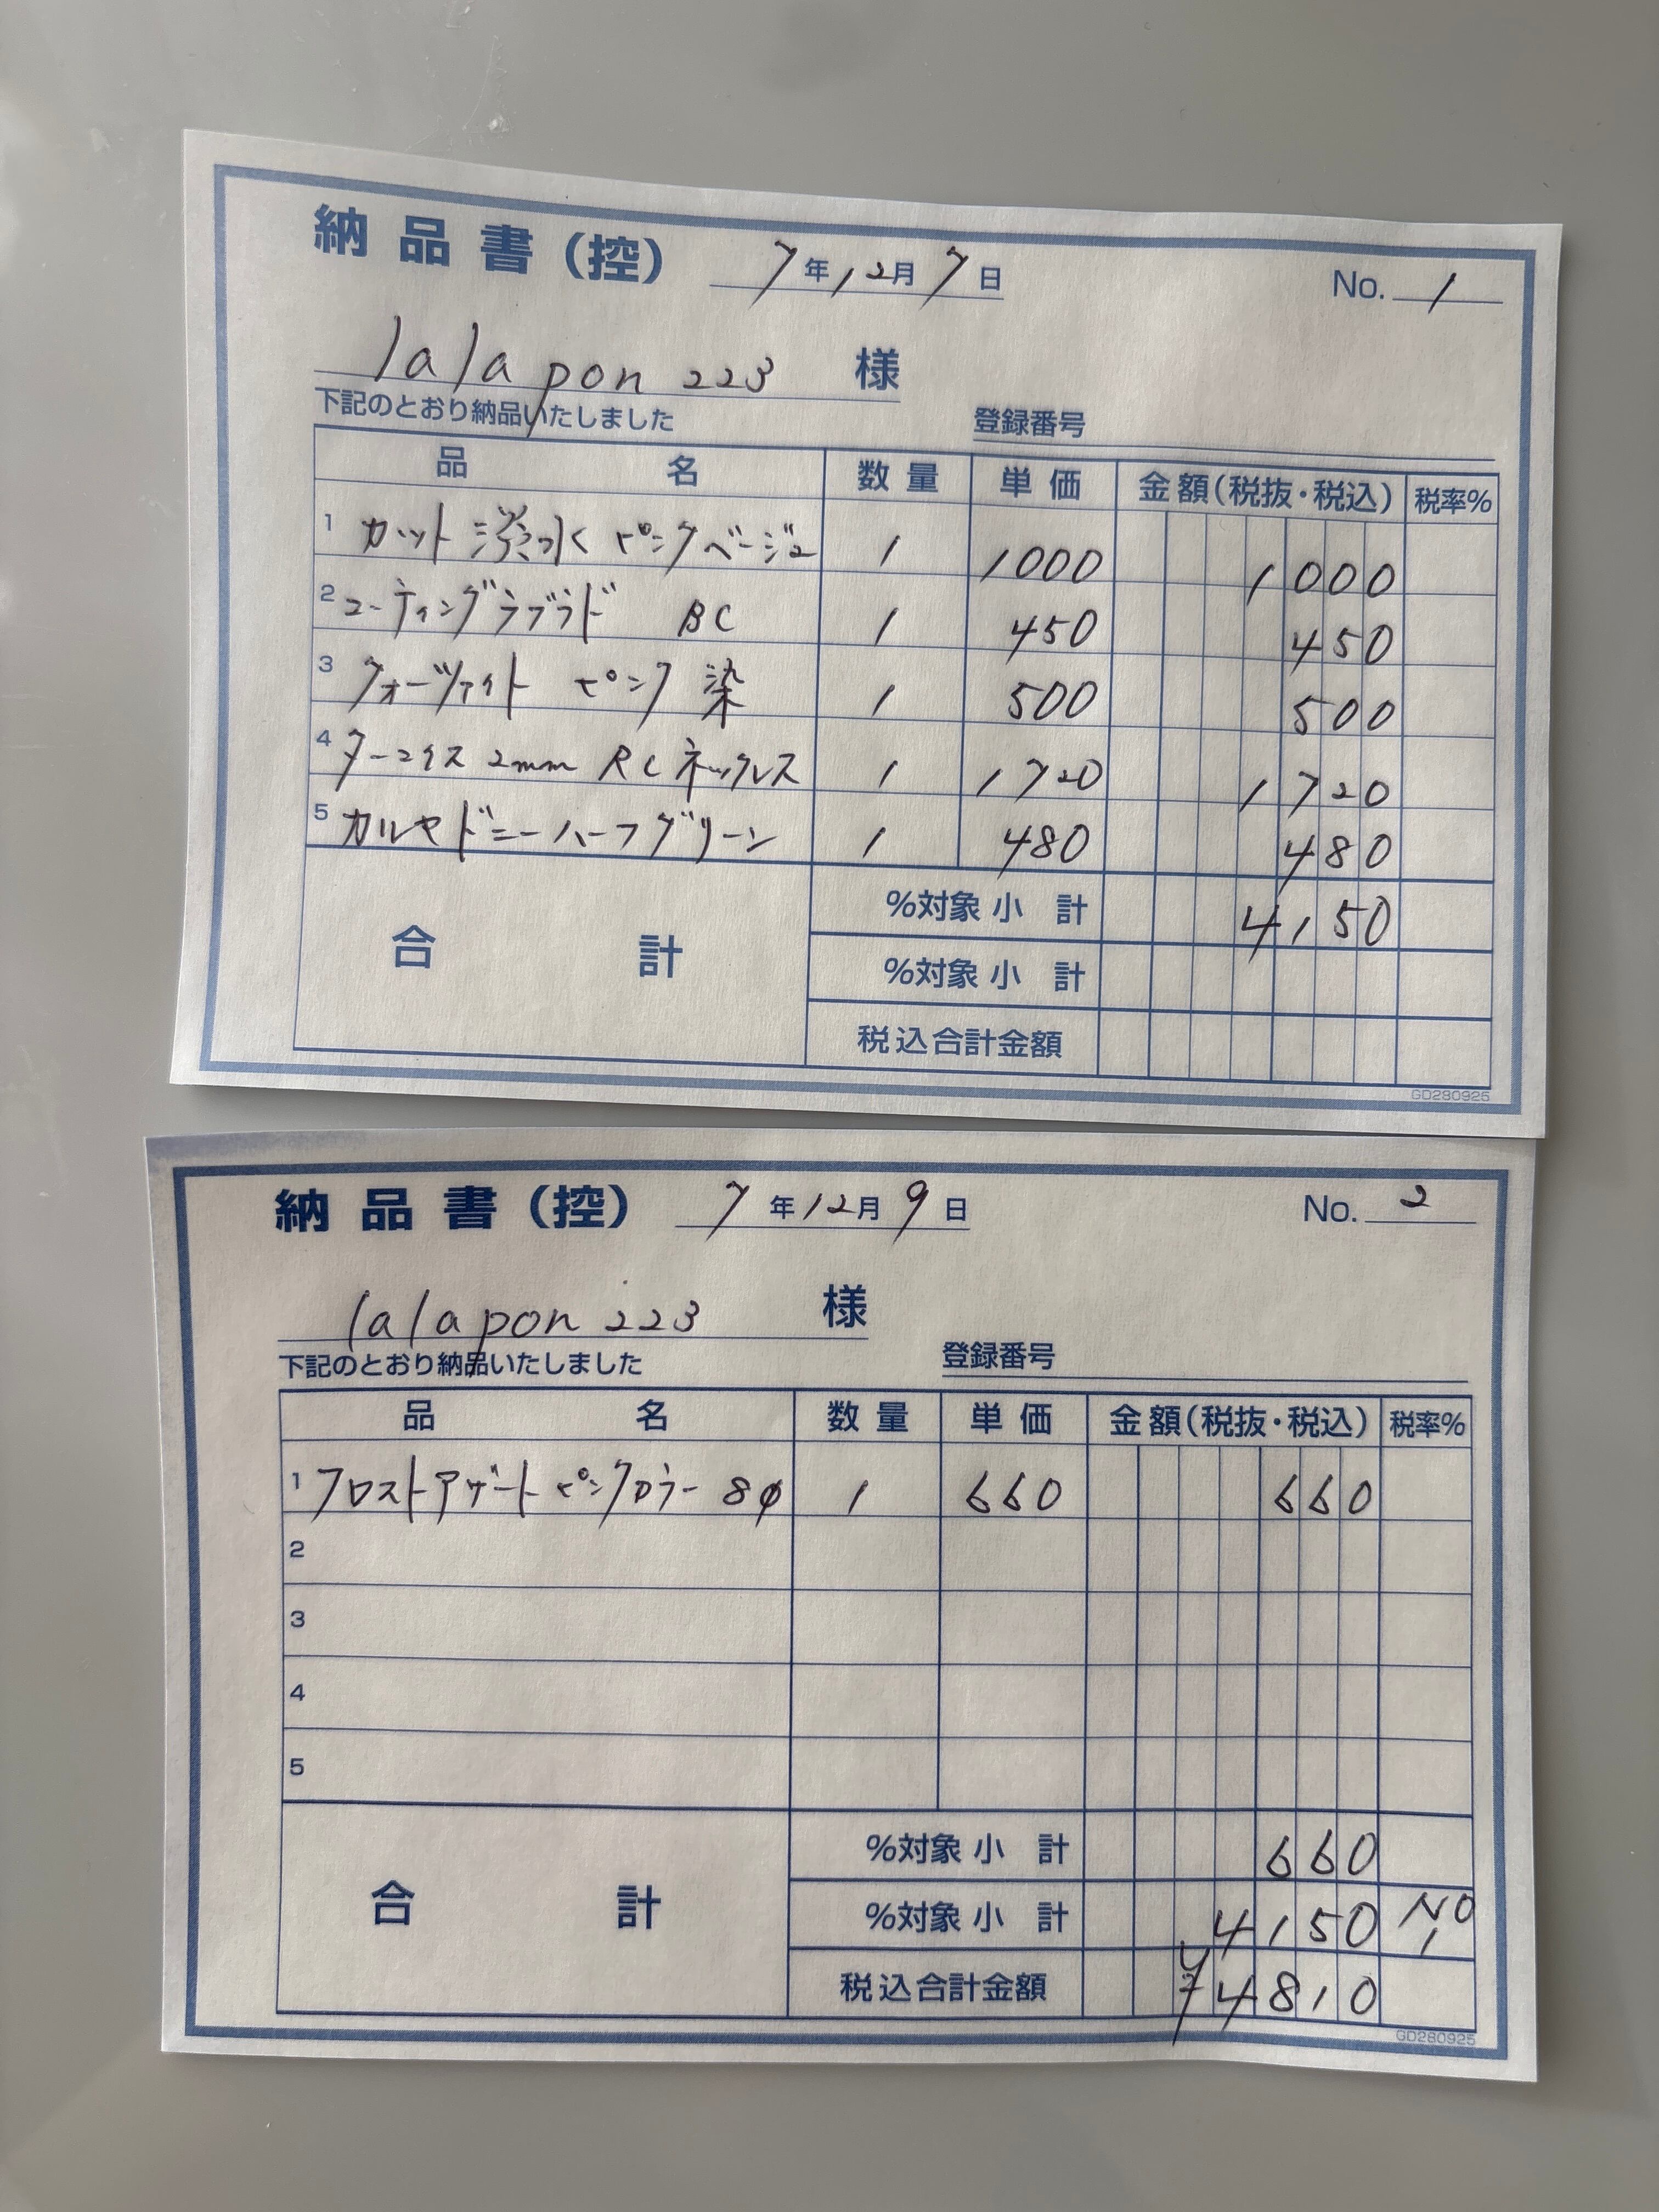 納品書（控） 7年12月7日 No. 1
lalapon 223 様
下記のとおり納品いたしました 登録番号
品 名 数量 単価 金額（税抜・税込） 税率%
1 カット 淡水 ピンクベージュ 1 1000 1000
2 コーティングラブラド BC 1 450 450
3 クォーツァイト ピンク 染 1 500 500
4 ターコイス 2mm RC ネックレス 1 1720 1720
5 カルセドニーハーフグリーン 1 480 480
合計
%対象 小計 4150
%対象 小計
税込合計金額
GD280925
納品書（控） 7年12月9日 No. 2
lalapon 223 様
下記のとおり納品いたしました 登録番号
品 名 数量 単価 金額（税抜・税込） 税率%
1 フロストアゲート ピンクカラー 8φ 1 660 660
2
3
4
5
合計
%対象 小計 660
%対象 小計 4150 NO 1
税込合計金額 ¥4810
GD280925